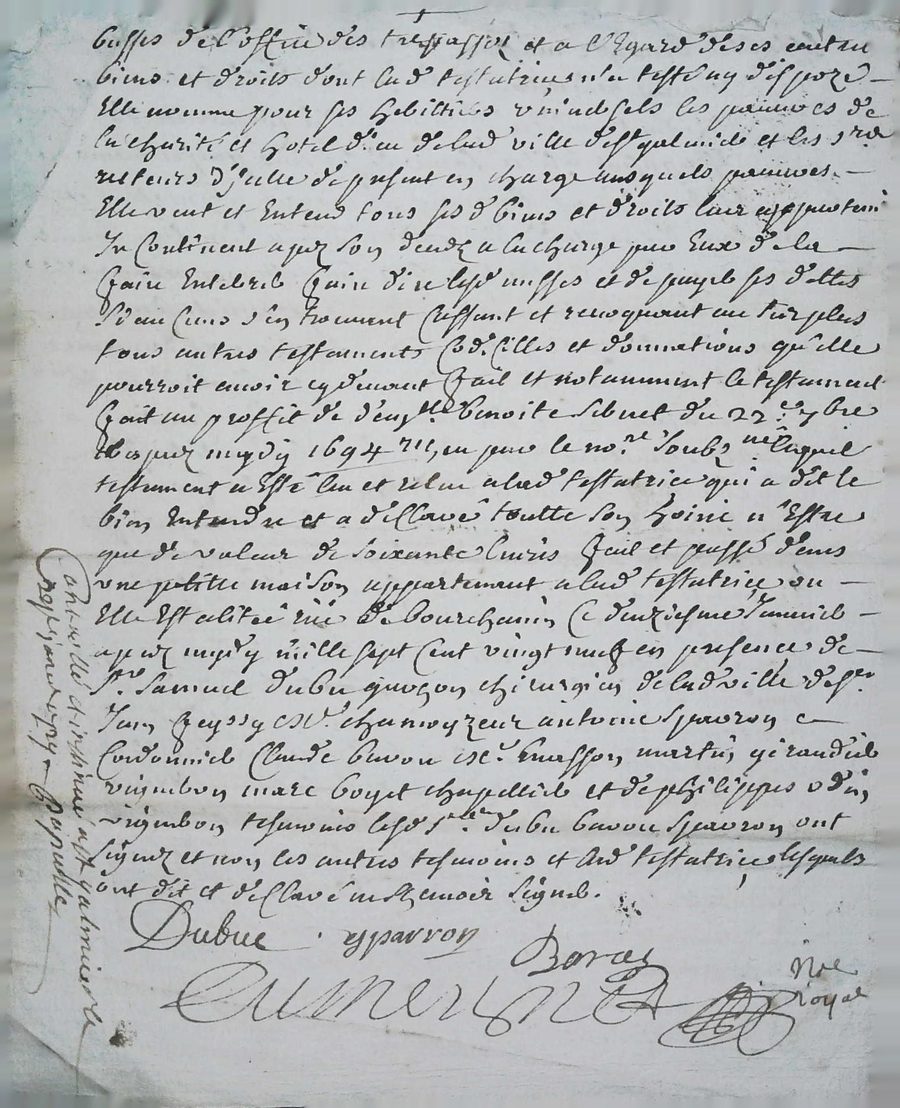 messes de l'office des trespassez et a l'Egard de ses autres
biens et droits dont lad testatrice n'a testé ny dispozé
Elle nomme pour ses heritiers universels les pauvres de
la charité et hotel dieu de lad ville de st galmier et les srs
recteurs d'jcelle de present en charge ausquels pauvres
Elle veut et Entend tous ses d biens et droits leur appartenir
Incontinent apres son deceds a la charge par Eux de la
faire Enterrer faire dire lesd messes et de payer ses dettes
sy aucunes s'en trouvent cassant et revoquant au surplus
tous autres testaments Codicilles et donnations qu'elle
pourroit avoir cydevant fait et notamment le testament
fait au proffit de benoite du 22e 7bre
apres midy 1694 par le nore soubzne lequel
testament a Esté leu et releu a lad testatrice qui a dit le
bien Entendre et a declaré toutte son hoirie n'Estre
que de valeur de soixante livres fait et passé dans
une petite maison appartenant a lad testatrice ou
Elle Est alitée rüe de bourchanin Ce deuziesme Janvier
apres midy mille sept cent vingt neuf en presence de
sr Samuel Dubuc garçon chirurgien de lad ville de sr
Jean feyssy me chamoyzeur antoine sparron
Cordonnier Claude bavou me masson martin girandier
vigneron marc boyet chapellier et de philippes odin
vigneron tesmoins lesd srs dubuc bavou sparron ont
signez et non les autres tesmoins et lad testatrice lesquels
ont dit et declaré ne scavoir signer.
Dubuc esparron
Nre
royal
Controllé et insinué a st galmier le